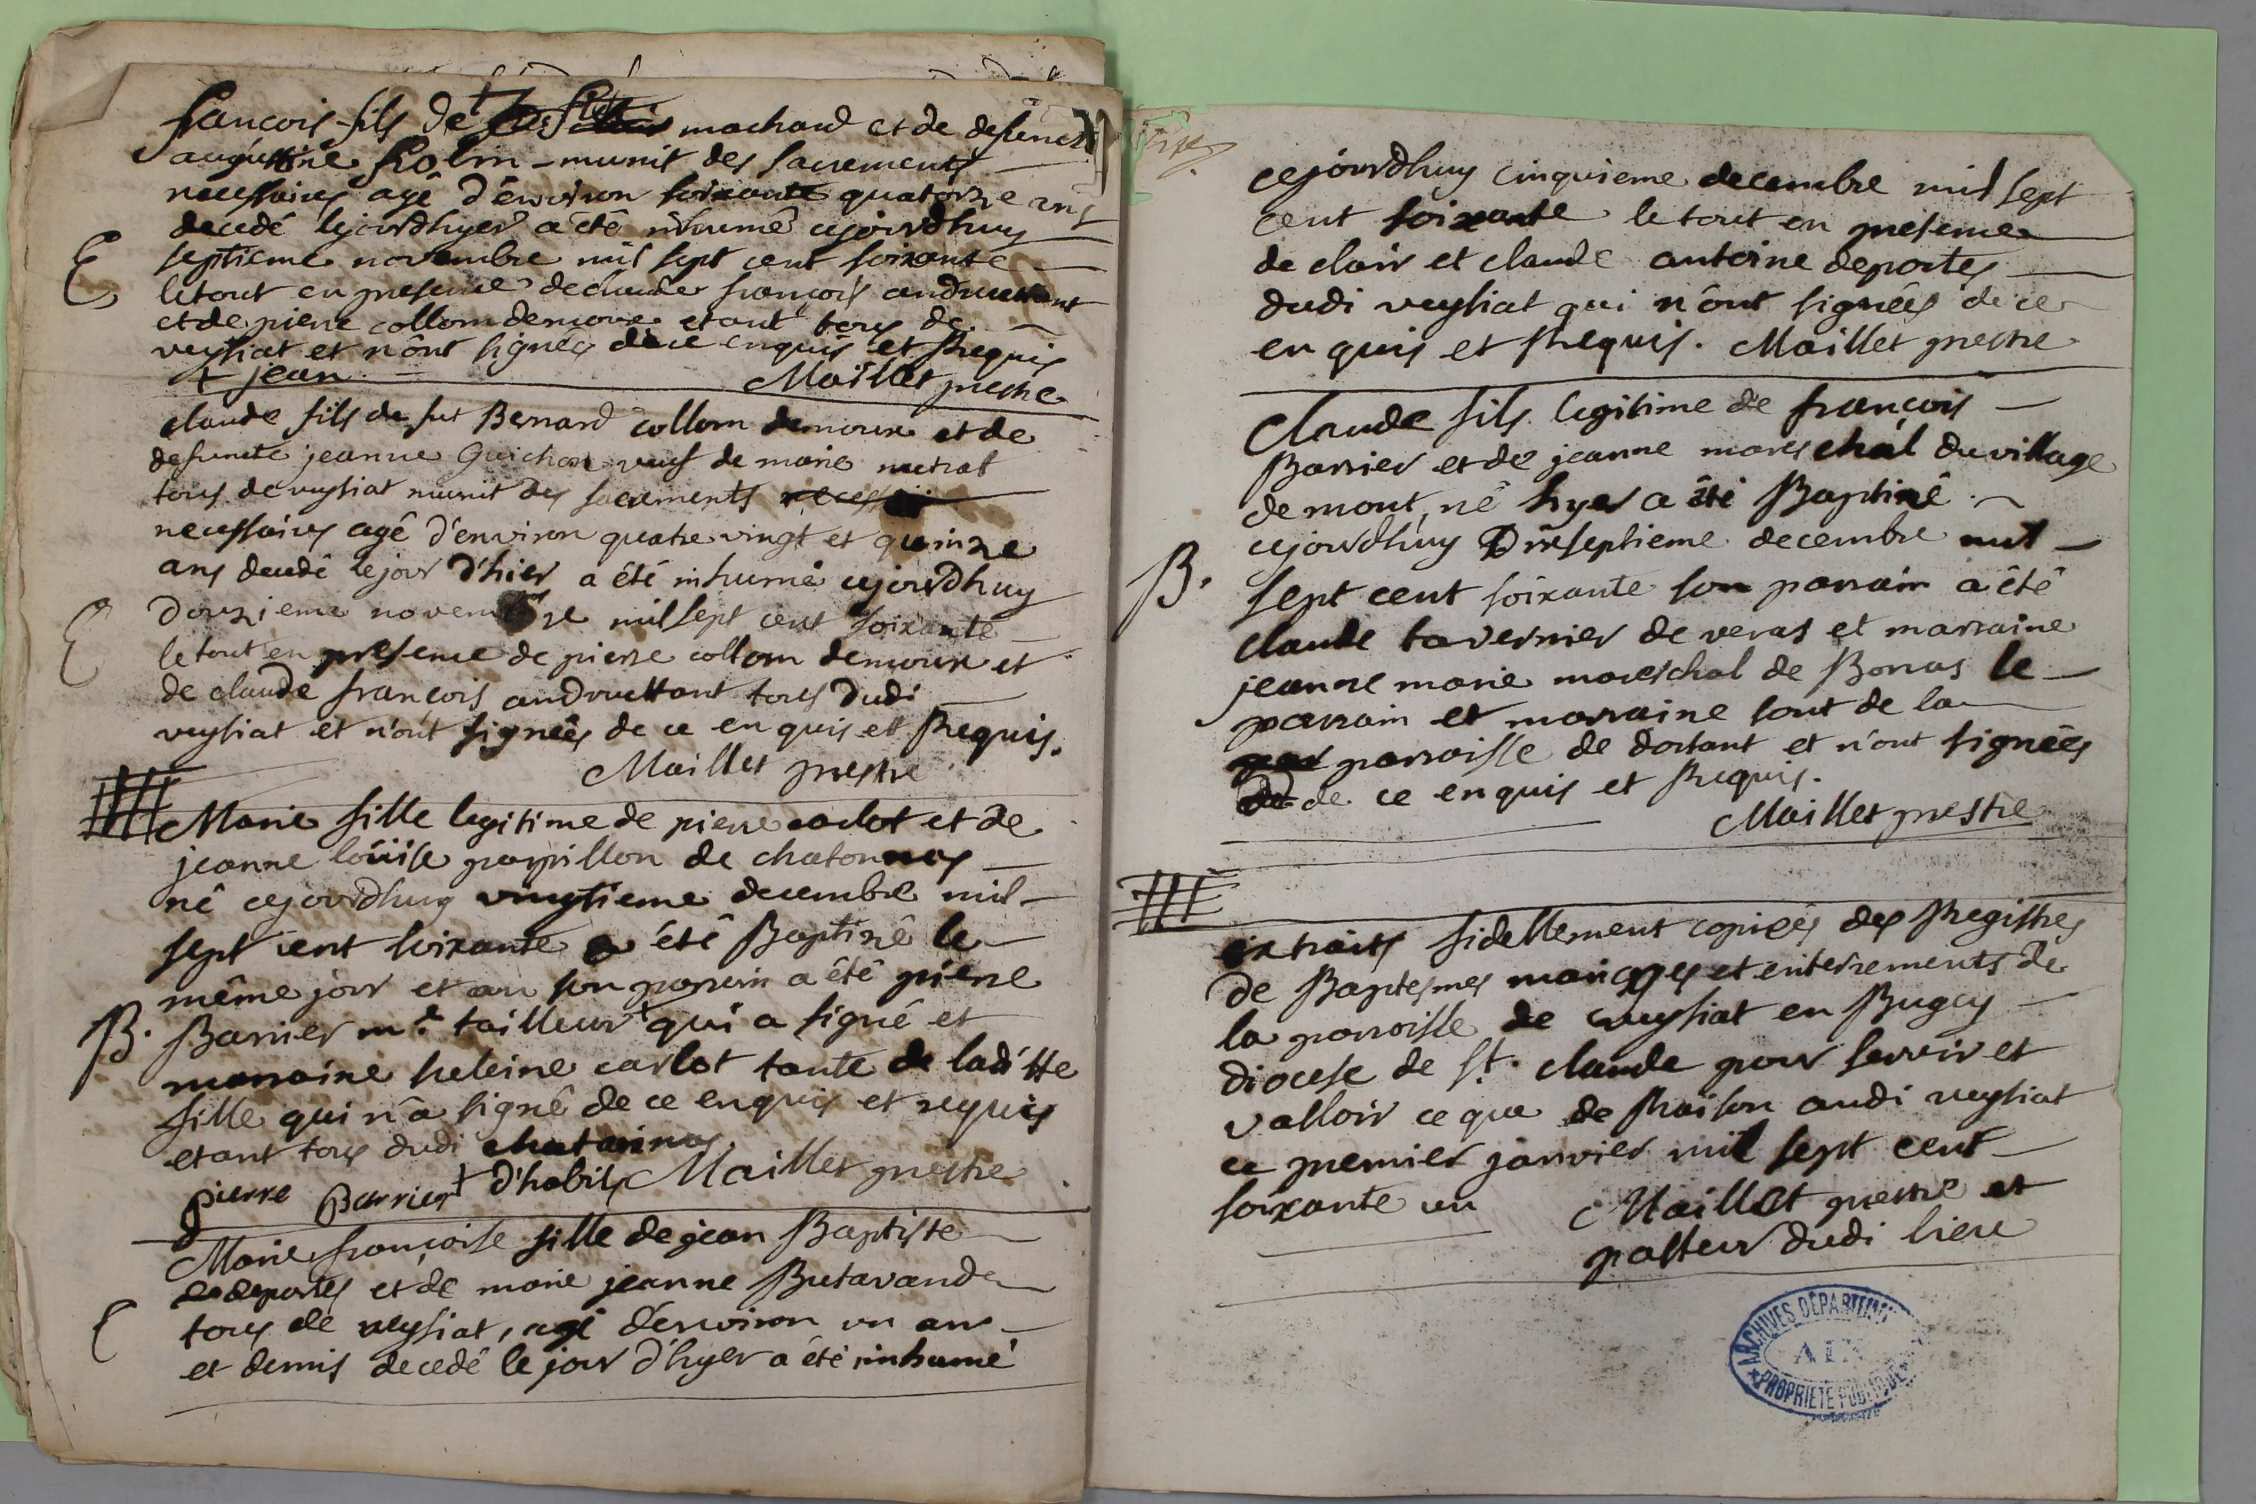 françois fils de machard et de defunct
augustine Rolin munit des sacrements
necessaires agé d'environ soixante quatorze ans
decedé lejourdhyer a été inhumé cejourdhuy
septieme novembre mil sept cent soixante
le tout en presence de claude françois andruettant
et de pierre collom demoure etant tous de
veysiat et n'ônt signeés de ce enquis et Requis
+ jean
Maillet prestre
claude fils de fut Bernard collom demoure et de
defuncte jeanne Guichon veuf de marie mutrat
tous de veysiat munit des sacrements
necessaires agé d'environ quatre vingt et quinze
ans decedé le jour d'hier a été inhumé cejourdhuy
douzieme novembre mil sept cent soixante
le tout en presence de pierre collom demoure et
de claude françois andruettant tous dudi
veysiat et n'ont signeés de ce enquis et Requis.
Maillet prestre
Marie fille legitime de pierre carlot et de
jeanne loüise papillon de chatonnas
né cejourdhuy vingtieme decembre mil
sept cent soixante a été Baptizé le
même jour et an son parrain a été pierre
B. Barrier md. tailleur + qui a signé et
marraine heleine carlot tante de laditte
fille qui n'a signé de ce enquis et requis
etant tous dudi chatonnas
pierre Barrier + d'habits Maillet prestre
Marie françoise fille de jean Baptiste
deportes et de marie jeanne Butavande
tous de veysiat, agé d'environ un an
et demis decedé le jour d'hyer a été inhumé
cejourdhuy cinquieme decembre mil sept
cent soixante le tout en presence
de clair et claude antoine deportes
dudi veysiat qui n'ônt signeés de ce
en quis et Requis. Maillet prestre
Claude fils legitime de françois
Barrier et de jeanne mareschal du village
de mont, né hyer a été Baptizé
cejourdhuy Dixseptieme decembre mil
B. sept cent soixante son parrain a été
claude tavernier de veras et marraine
jeanne marie mareschal de Bonas le
parrain et marraine sont de la
parroisse de dortant et n'ont signeés
de ce enquis et Requis.
Maillet prestre
extraits fidellement copieés des Registres
de Baptesmes mariages et enterrements de
la parroisse de veysiat en Bugey
diocese de St. claude pour servir et
valloir ce que de Raison audi veysiat
ce premier janvier mil sept cent
soixante un Maillet prestre et
pasteur dudi lieu
ARCHIVES DÉPARTEM
AIN
PROPRIETE PUBLIQUE